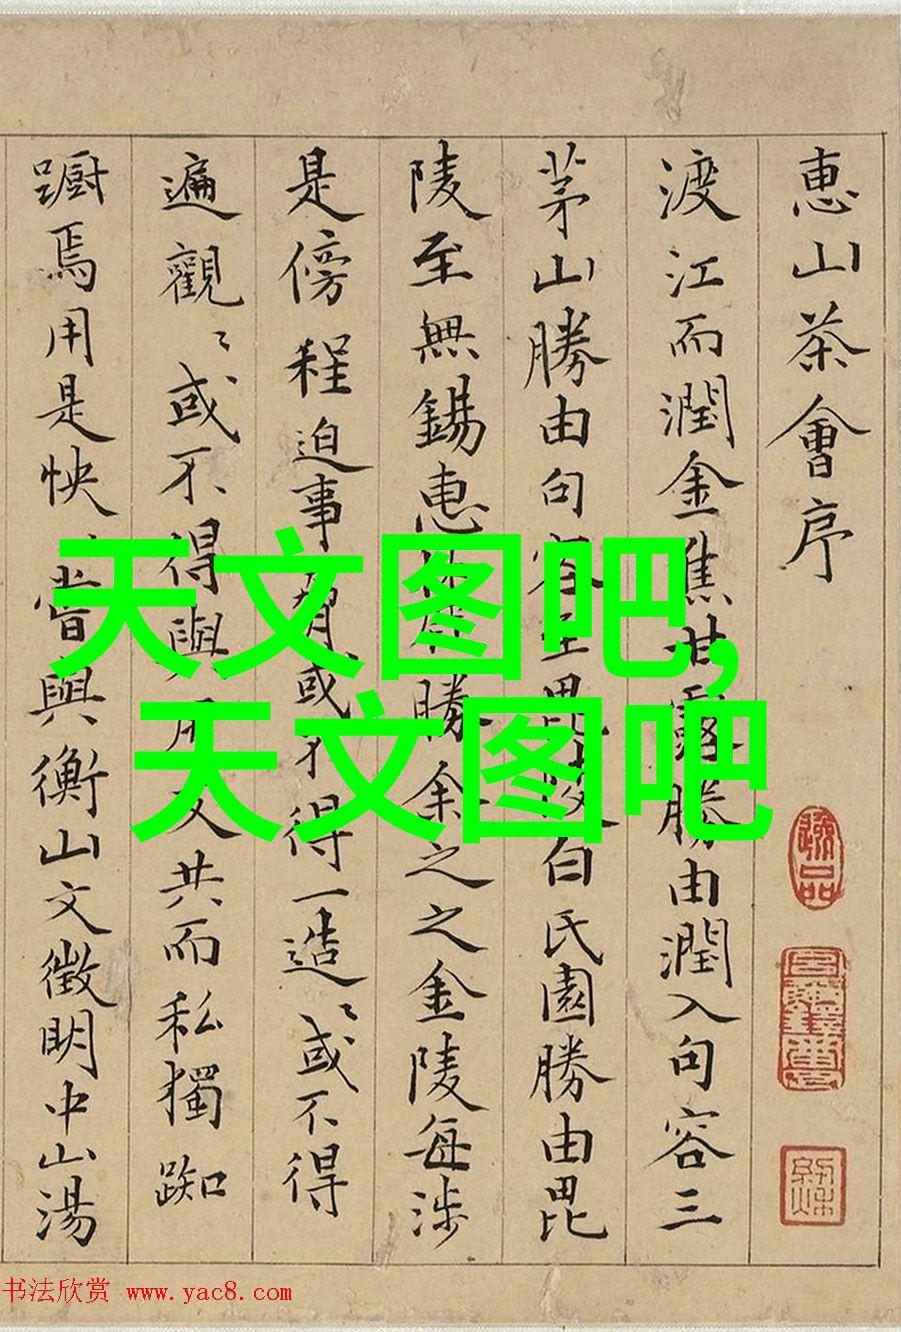 惠山茶會序
渡江而潤金焦甘露勝由潤入句容三
茅山勝由句容至毘陵白氏園勝由毘
陵至無錫惠山勝余之之金陵每涉
是傍程迫事有或不得一造〻或不得
遍觀〻或不得與友共而私獨踟
蹰焉用是怏〻嘗與衡山文徵明中山湯
天文图吧,
天文图吧
书法欣赏 www.yac8.com